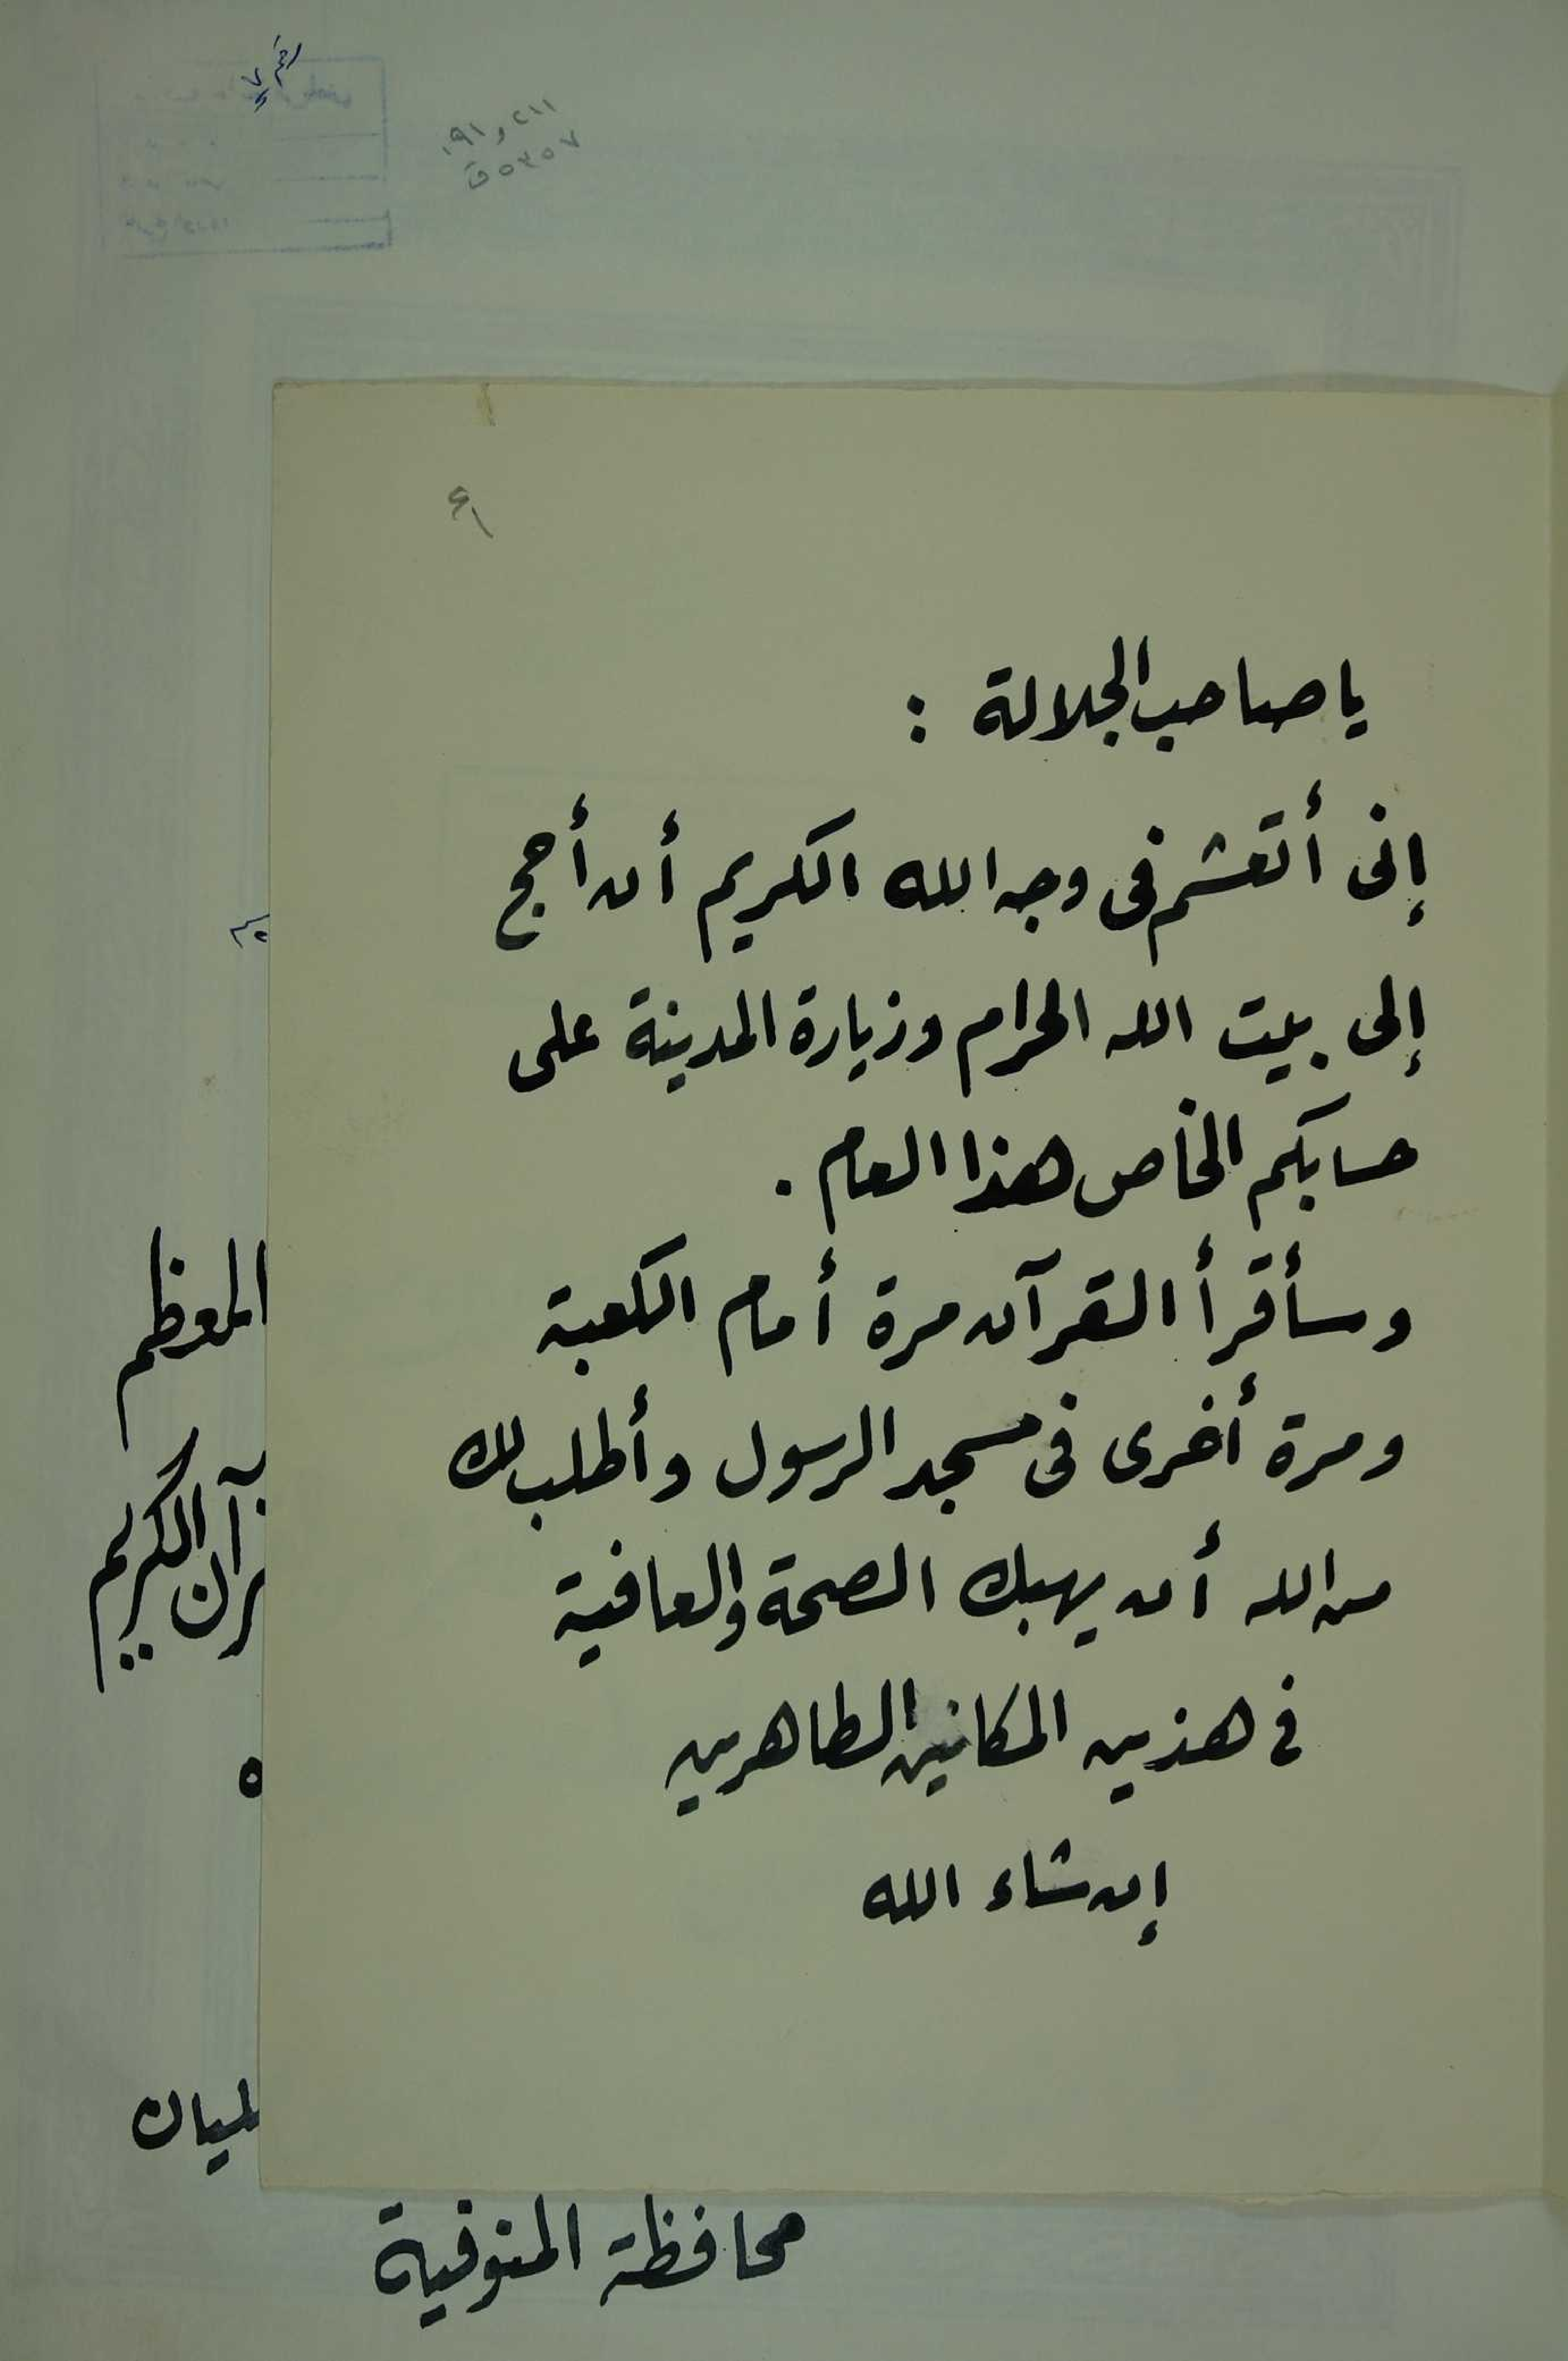 ٢١١و١٩١
٥٣٥٧ق
يا صاحب الجلالة :
إنى أتعشم فى وجه الله الكريم أن أحج
إلى بيت الله الحرام وزيارة المدينة على
حسابكم الخاص هذا العام .
وسأقرأ القرآن مرة أمام الكعبة
ومرة أخرى فى مسجد الرسول وأطلب لك
من الله أن يهبك الصحة والعافية
فى هذين المكانين الطاهرين
إن شاء الله
المعظم
رآن الكريم
ه
محافظة المنوفية